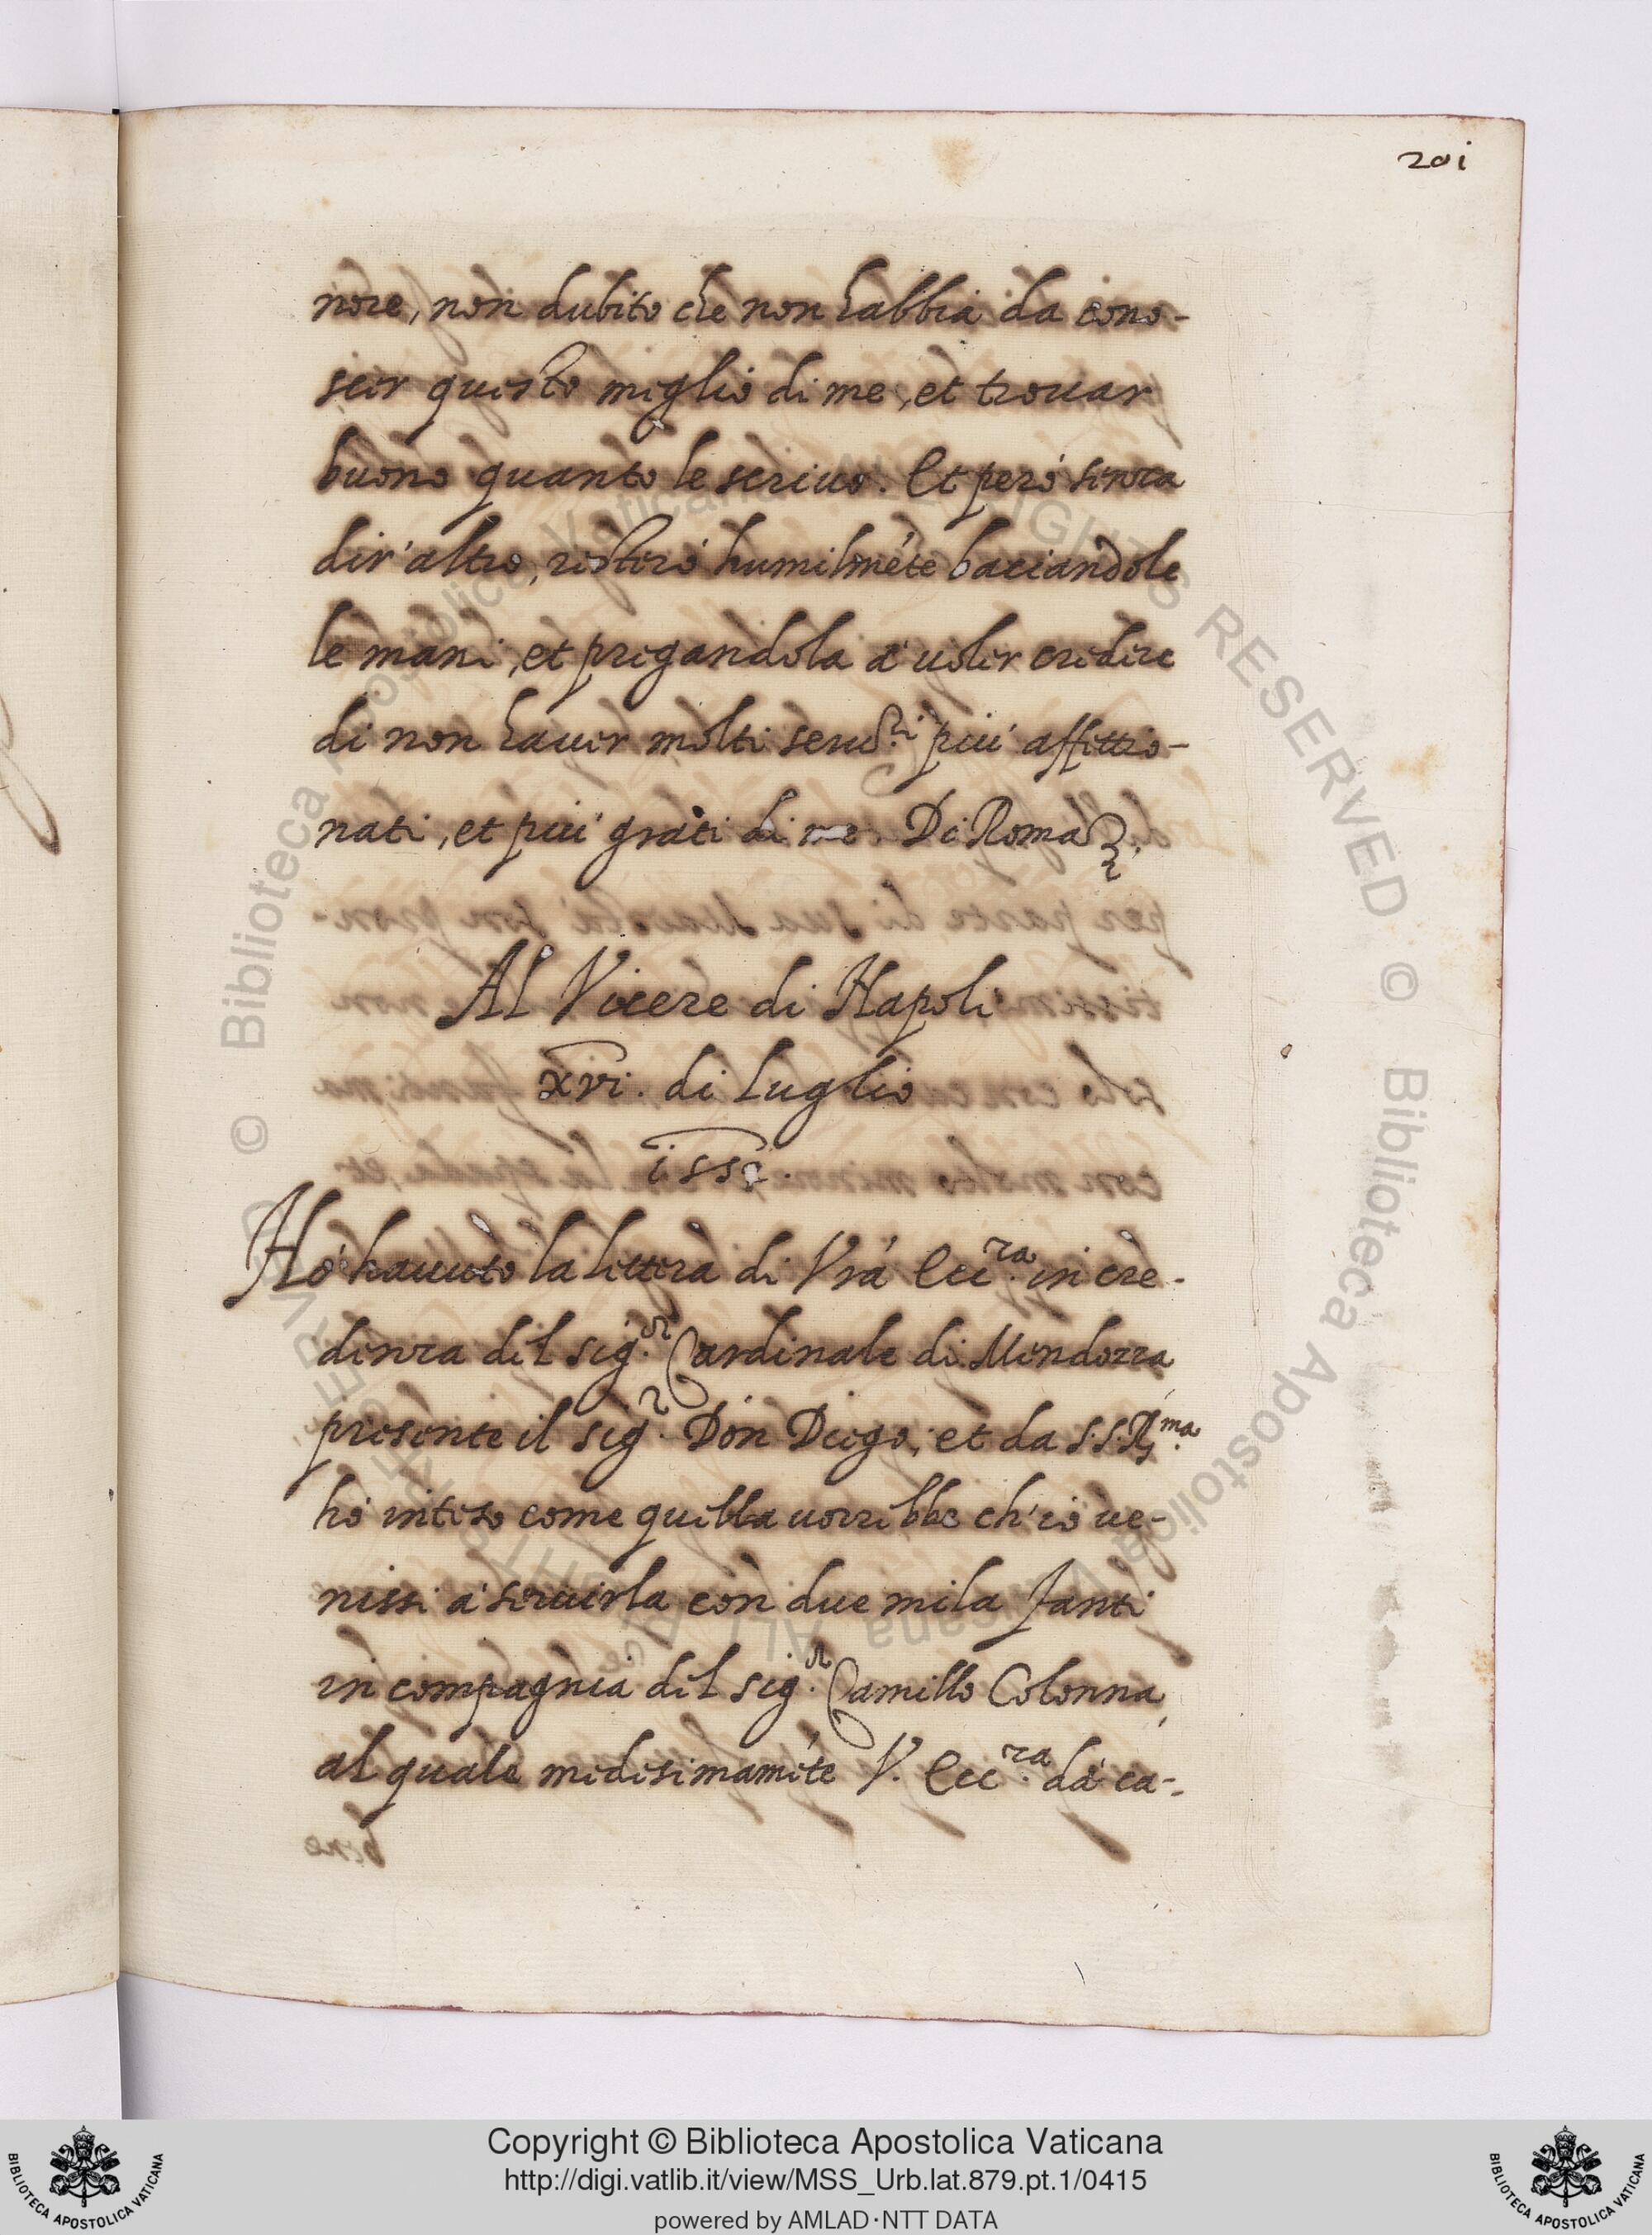 201
nore, non dubito che non habbia da cono-
scer questo meglio di me, et trouar
buono quanto le scriuo. Et però senza
dir' altro, resterò humilmẽte baciandole
le mani, et pregandola à uoler credere
di non hauer molti seru.ri più affettio-
nati, et più grati di me. Di Roma
Al Vicere di Napoli
xvi. di Luglio
Hò hauuto la lettera di Vrã Ecc.ra in cre-
denza del sig.r Cardinale di Mendozza
presente il sig.r Don Diego, et da S.S.R.ma
hò inteso come quella uorrebbe ch'io ue-
nissi à seruirla con due mila fanti
in compagnia del sig.r Camillo Colonna,
al quale medesimamẽte V. Ecc.ra dà ca-
© Biblioteca Apostolica Vaticana ALL RIGHTS RESERVED
© Biblioteca Apostolica Vaticana ALL RIGHTS RESERVED
Copyright © Biblioteca Apostolica Vaticana
http://digi.vatlib.it/view/MSS_Urb.lat.879.pt.1/0415
powered by AMLAD·NTT DATA
BIBLIOTECA APOSTOLICA VATICANA
BIBLIOTECA APOSTOLICA VATICANA